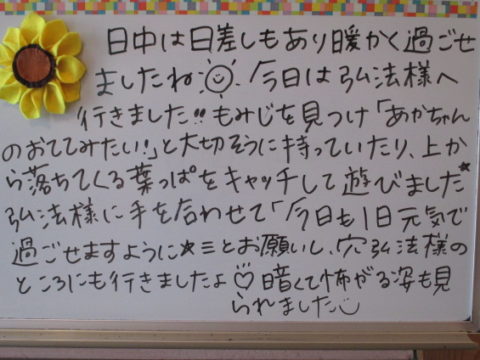 日中は日差しもあり暖かく過ごせ
ましたね☀今日は弘法様へ
行きました!!もみじを見つけ「あかちゃん
のおててみたい!」と大切そうに持っていたり、上か
ら落ちてくる葉っぱをキャッチして遊びました★
弘法様に手を合わせて「今日も1日元気で
過ごせますように★ミとお願いし、穴弘法様の
ところにも行きましたよ♡暗くて怖がる姿も見
られました